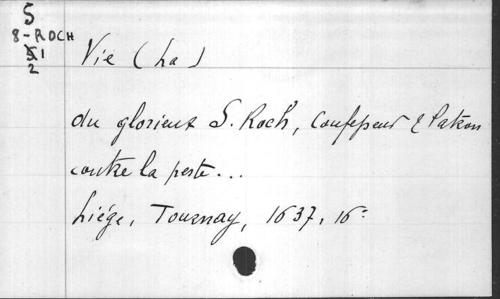 5
8-ROCH
51
2
Vie (La)
du glorieux S. Roch, Confesseur & Patron
contre la peste...
Liége, Tournay, 1637, 16°